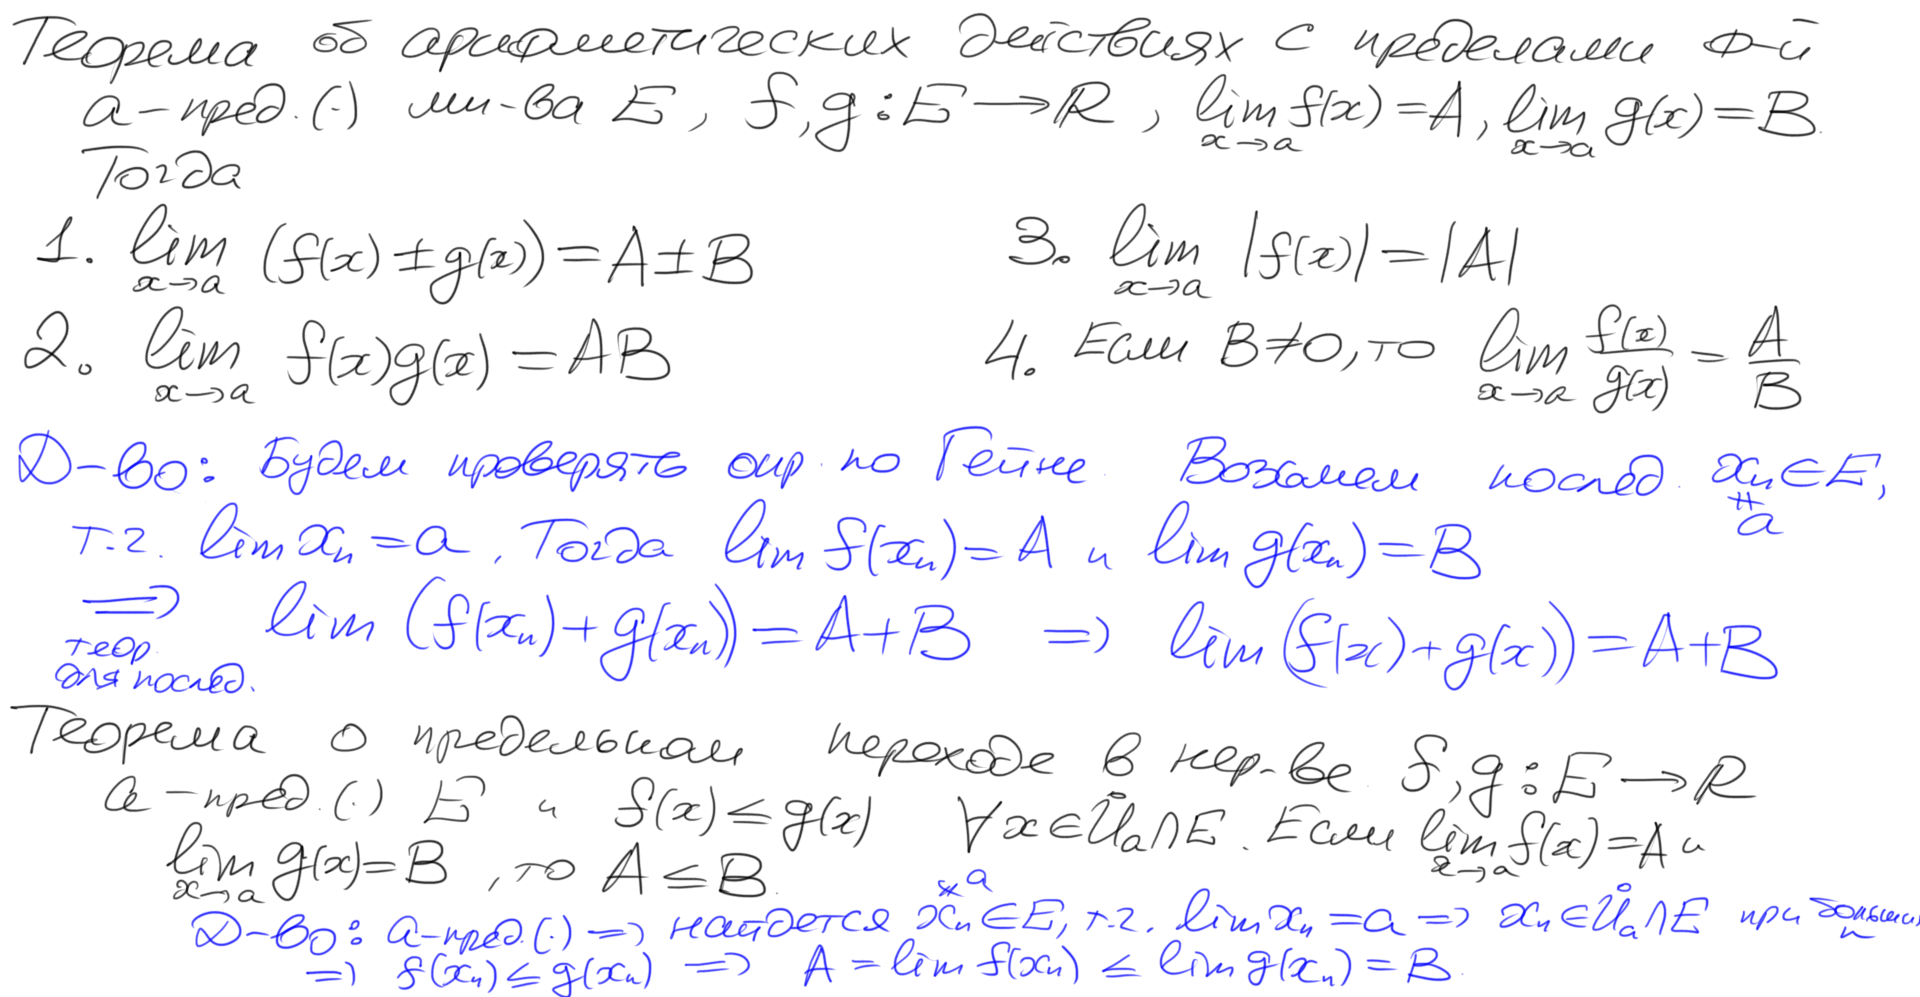 Теорема об арифметических действиях с пределами ф-й
a – пред. (·) мн-ва E, f, g : E → R, lim_{x→a} f(x) = A, lim_{x→a} g(x) = B.
Тогда
1. lim_{x→a} (f(x) ± g(x)) = A ± B
3. lim_{x→a} |f(x)| = |A|
2. lim_{x→a} f(x)g(x) = AB
4. Если B ≠ 0, то lim_{x→a} f(x)/g(x) = A/B
Д-во: Будем проверять опр. по Гейне. Возьмем послед. x_n ∈ E,
≠ a
т.ч. lim x_n = a. Тогда lim f(x_n) = A и lim g(x_n) = B
⟹ lim (f(x_n) + g(x_n)) = A + B ⟹ lim (f(x) + g(x)) = A + B
теор.
для послед.
Теорема о предельном переходе в нер-ве f, g : E → R
a – пред. (·) E и f(x) ≤ g(x) ∀x ∈ Ů_a ∩ E. Если lim_{x→a} f(x) = A и
lim_{x→a} g(x) = B, то A ≤ B.
≠ a
Д-во: a – пред. (·) ⟹ найдется x_n ∈ E, т.ч. lim x_n = a ⟹ x_n ∈ Ů_a ∩ E при больших n
⟹ f(x_n) ≤ g(x_n) ⟹ A = lim f(x_n) ≤ lim g(x_n) = B.